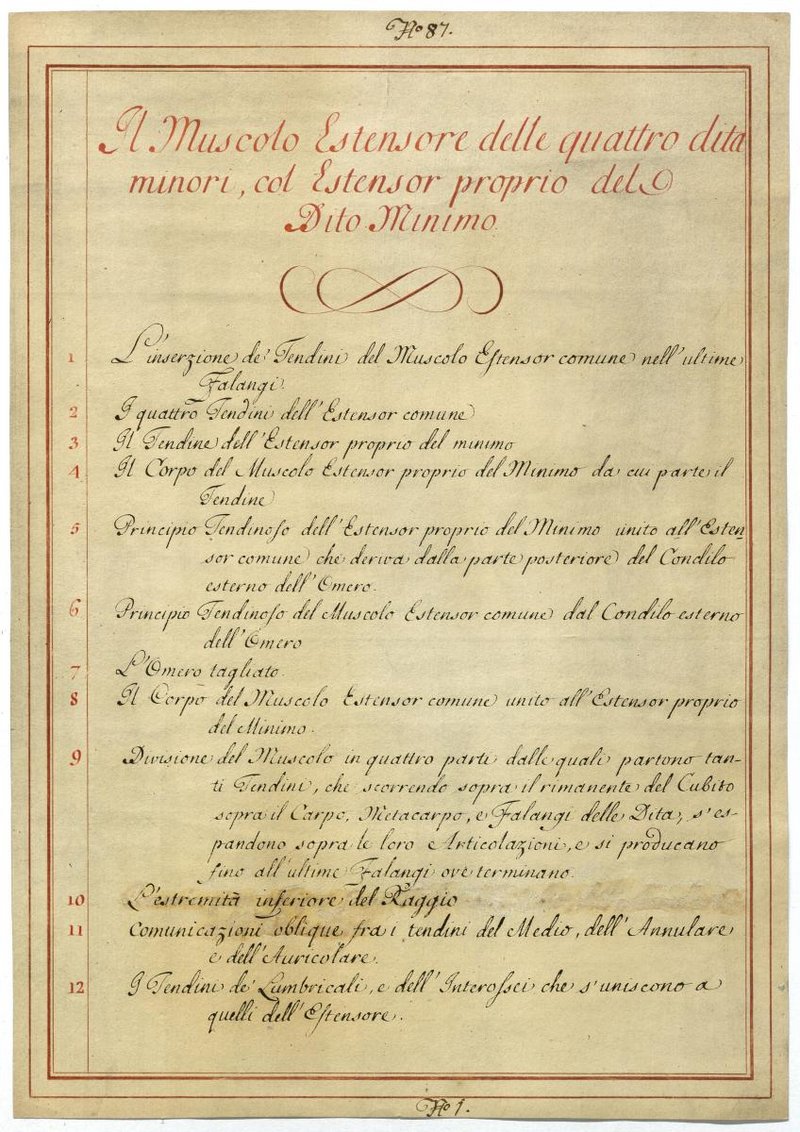 No 87.
Il Muscolo Estensore delle quattro dita
minori, col Estensor proprio del
Dito Minimo.
1 L'inserzione de' Tendini del Muscolo Eſtensor comune nell'ultime
Falangi.
2 I quattro Tendini dell'Estensor comune
3 Il Tendine dell'Estensor proprio del minimo
4 Il Corpo del Muscolo Estensor proprio del Minimo da cui parte il
Tendine
5 Principio Tendinoſo dell'Estensor proprio del Minimo unito all'Esten
sor comune che deriva dalla parte posteriore del Condilo
esterno dell'Omero.
6 Principio Tendinoſo del Muscolo Estensor comune dal Condilo esterno
dell'Omero
7 L'Omero tagliato.
8 Il Corpo del Muscolo Estensor comune unito all'Estensor proprio
del Minimo.
9 Divisione del Muscolo in quattro parti dalle quali partono tan-
ti Tendini, che scorrendo sopra il rimanente del Cubito
sopra il Carpo, Metacarpo, e Falangi delle Dita, s'es-
pandono sopra le loro Articolazioni, e si producano
fino all'ultime Falangi ove terminano.
10 L'estremità inferiore del Raggio
11 Comunicazioni oblique fra i tendini del Medio, dell'Annulare
e dell'Auricolare.
12 I Tendini de' Lumbricali, e dell'Interoſsei che s'uniscono a
quelli dell'Eſtensore.
No 1.